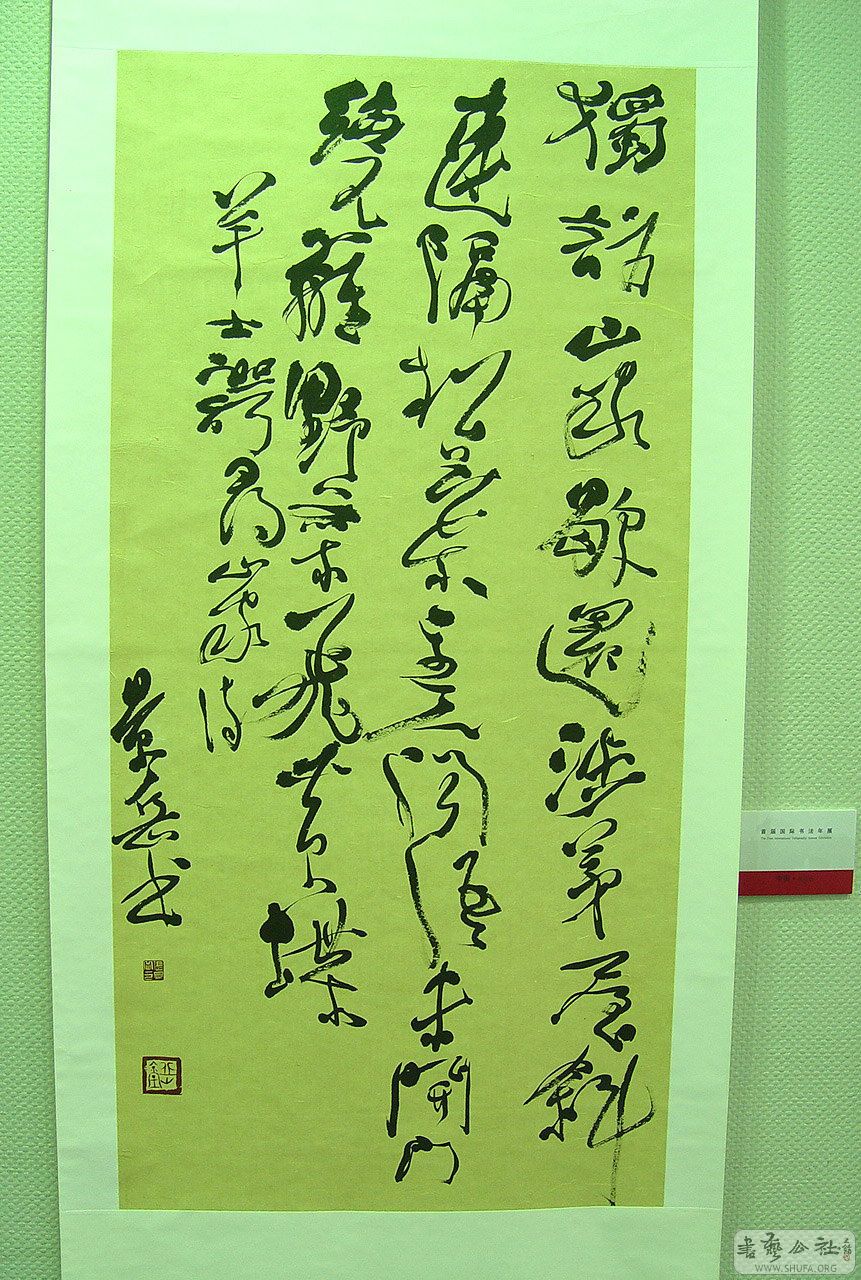 獨訪山家歇還涉茅屋斜
連隔松葉主人聞語未開門
繞籬野菜飛黃蝶
羊士諤尋山家詩
景岳書
首届国际书法年展
書藝公社
WWW.SHUFA.ORG